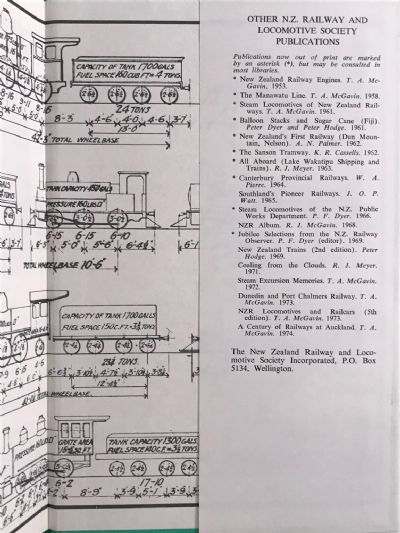 CAPACITY OF TANK 1700GALS
FUEL SPACE 160CUB.FT=4 TONS.
24 TONS
8-3
4-6
4-0
4-6
3-7
13-0
TOTAL WHEELBASE
TANK CAPACITY
PRESSURE
6-15
6-15
6-10
5-0
5-6
TOTAL WHEELBASE 10-6
CAPACITY OF TANK 1700 GALS
TONS.
WHEELBASE
PRESSURE
GRATE AREA
TANK CAPACITY 1300 GALS
6-2
17-10
8-9
OTHER N.Z. RAILWAY AND
LOCOMOTIVE SOCIETY
PUBLICATIONS
Publications now out of print are marked
by an asterisk (*), but may be consulted in
most libraries.
* New Zealand Railway Engines. T. A. Mc-
Gavin, 1953.
* The Manawatu Line. T. A. McGavin. 1958.
* Steam Locomotives of New Zealand Rail-
ways. T. A. McGavin. 1961.
* Balloon Stacks and Sugar Cane (Fiji).
Peter Dyer and Peter Hodge. 1961.
* New Zealand's First Railway (Dun Moun-
tain, Nelson). A. N. Palmer. 1962.
* The Sanson Tramway. K. R. Cassells. 1962.
* All Aboard (Lake Wakatipu Shipping and
Trains). R. J. Meyer. 1963.
* Canterbury Provincial Railways. W. A.
Pierre. 1964.
Southland's Pioneer Railways. J. O. P.
Watt. 1965.
* Steam Locomotives of the N.Z. Public
Works Department. P. F. Dyer. 1966.
NZR Album. R. J. McGavin. 1968.
* Jubilee Selections from the N.Z. Railway
Observer. P. F. Dyer (editor). 1969.
New Zealand Trains (2nd edition). Peter
Hodge. 1969.
Coaling from the Clouds. R. J. Meyer.
1971.
Steam Excursion Memories. T. A. McGavin.
1972.
Dunedin and Port Chalmers Railway. T. A.
McGavin. 1973.
NZR Locomotives and Railcars (5th
edition). T. A. McGavin. 1973.
A Century of Railways at Auckland. T. A.
McGavin. 1974.
The New Zealand Railway and Loco-
motive Society Incorporated, P.O. Box
5134, Wellington.